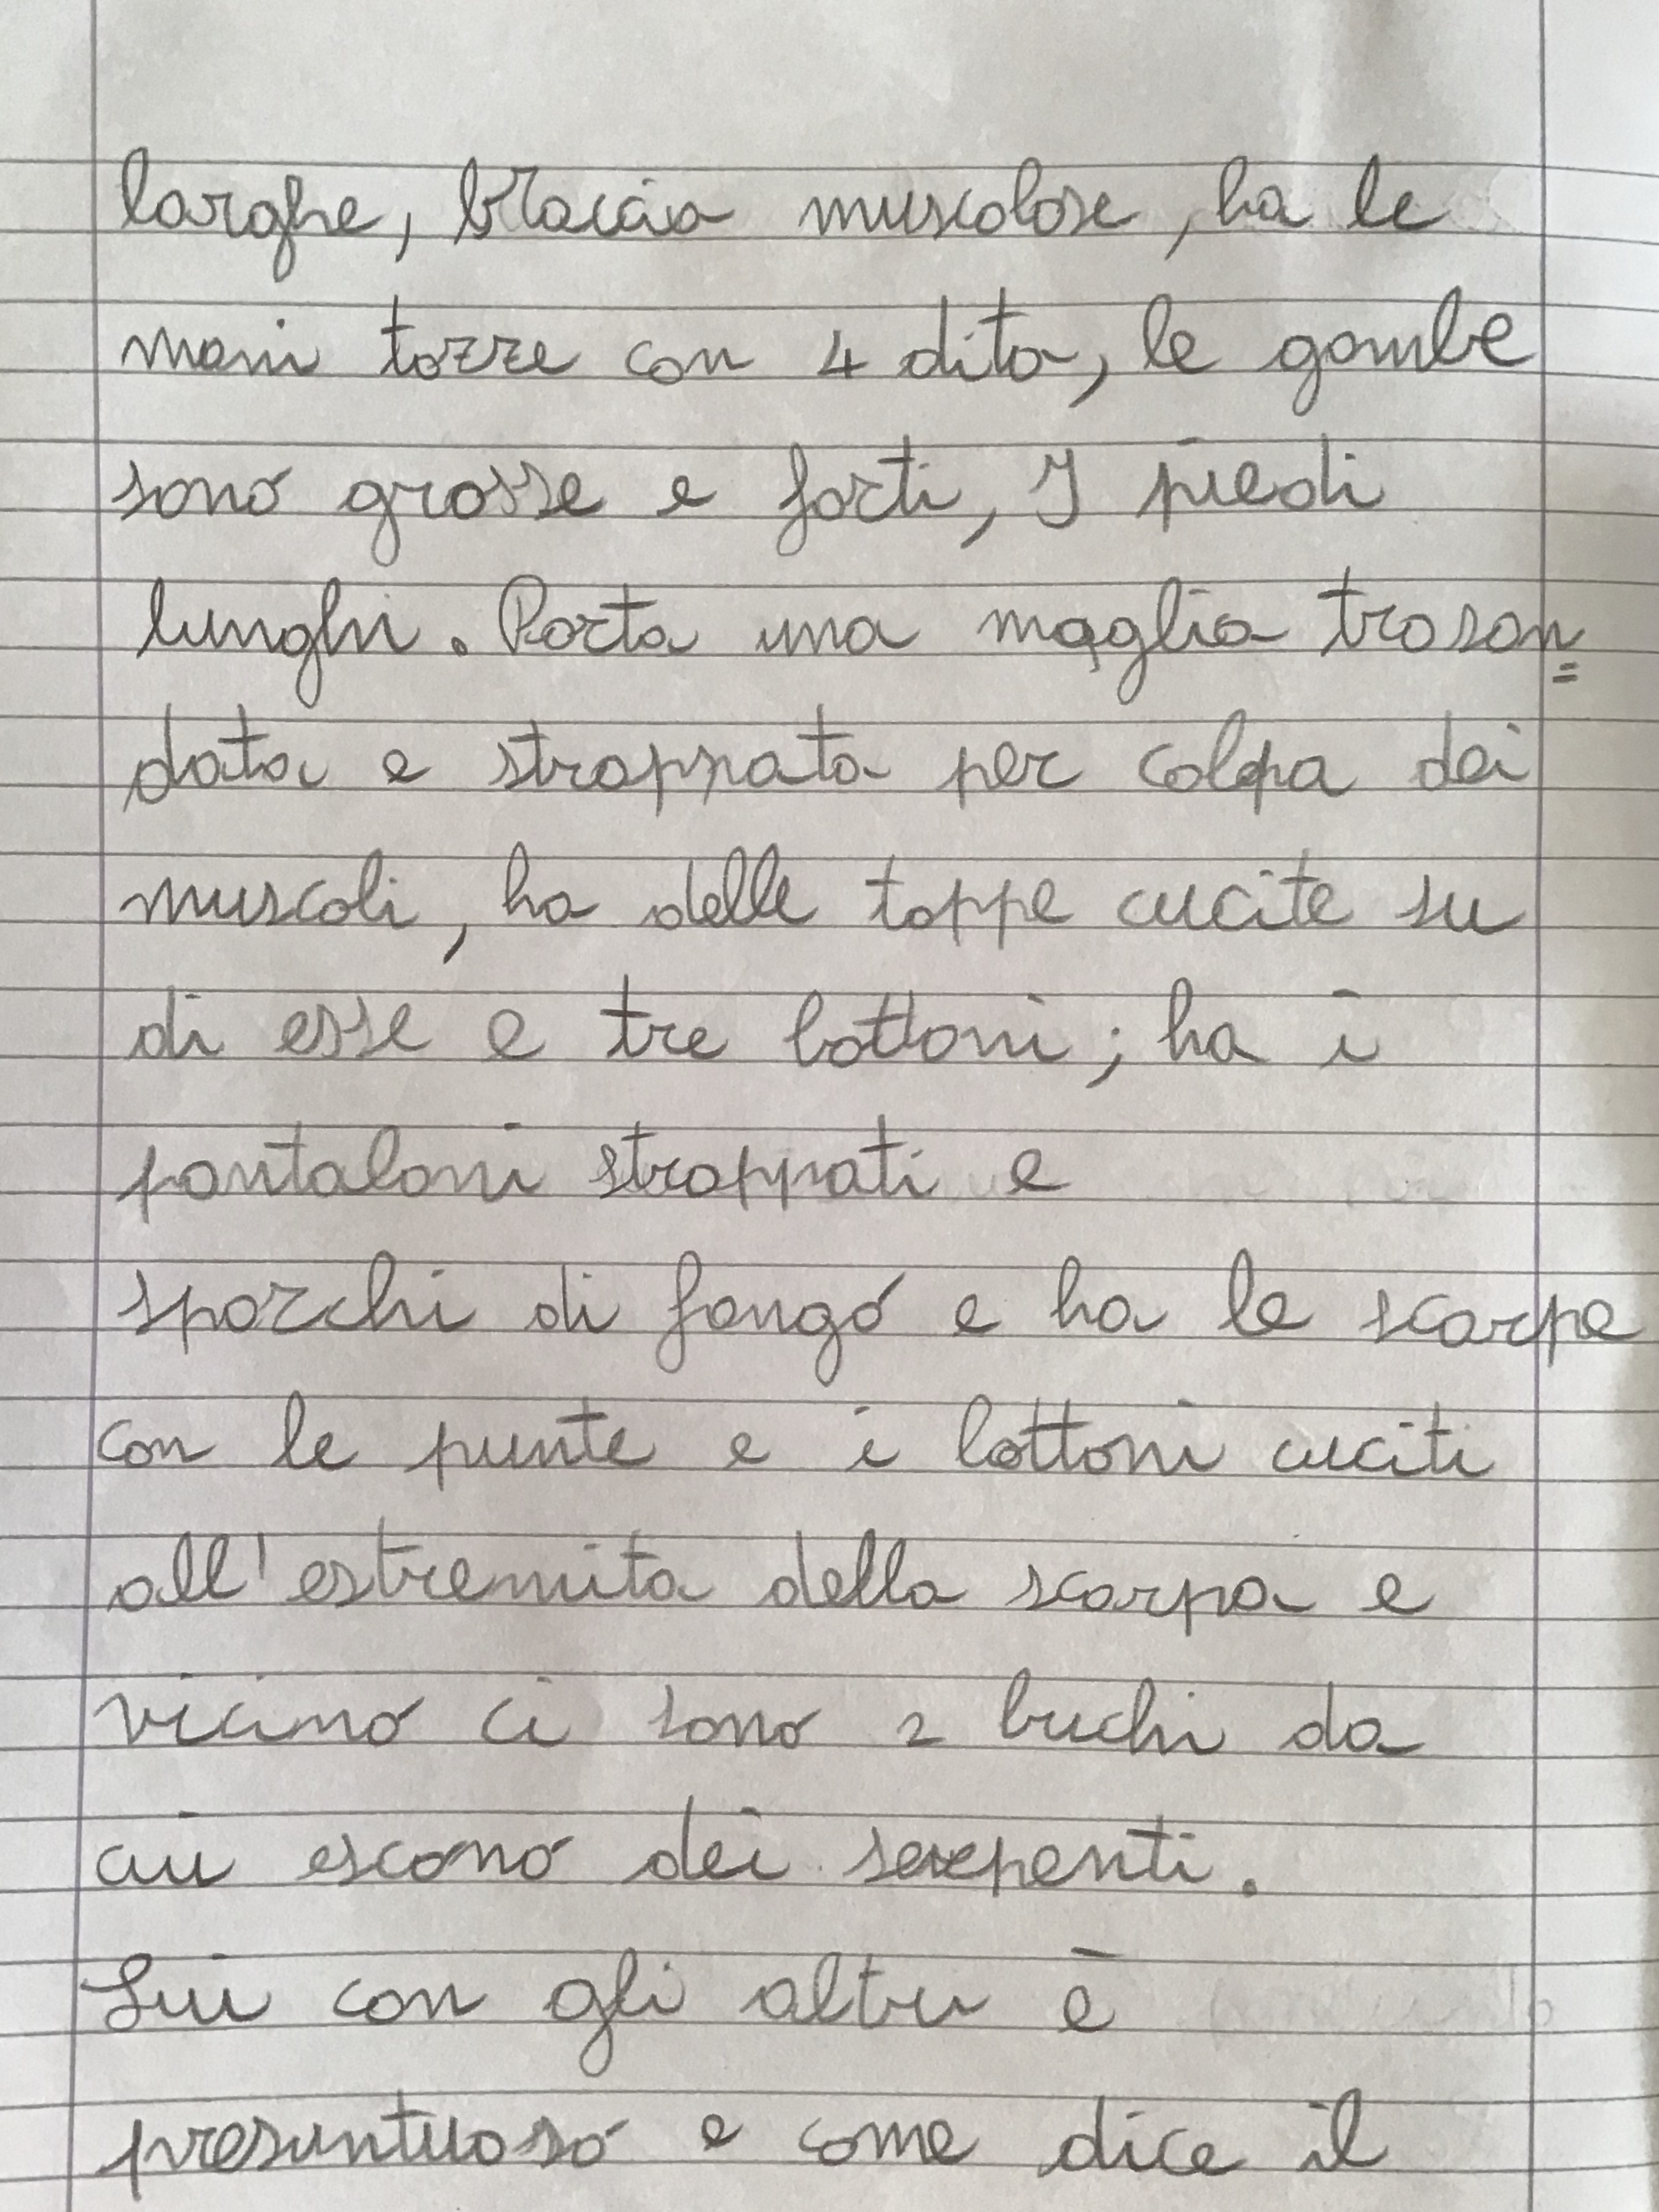 larghe, braccia muscolose, ha le
mani tozze con 4 dita, le gambe
sono grosse e forti, I piedi
lunghi. Porta una maglia trasan=
data e strappata per colpa dei
muscoli, ha delle toppe cucite su
di esse e tre bottoni; ha i
pantaloni strappati e
sporchi di fango e ha le scarpe
con le punte e i bottoni cuciti
all'estremita della scarpa e
vicino ci sono 2 buchi da
cui escono dei serpenti.
Lui con gli altri è
presuntuoso e come dice il